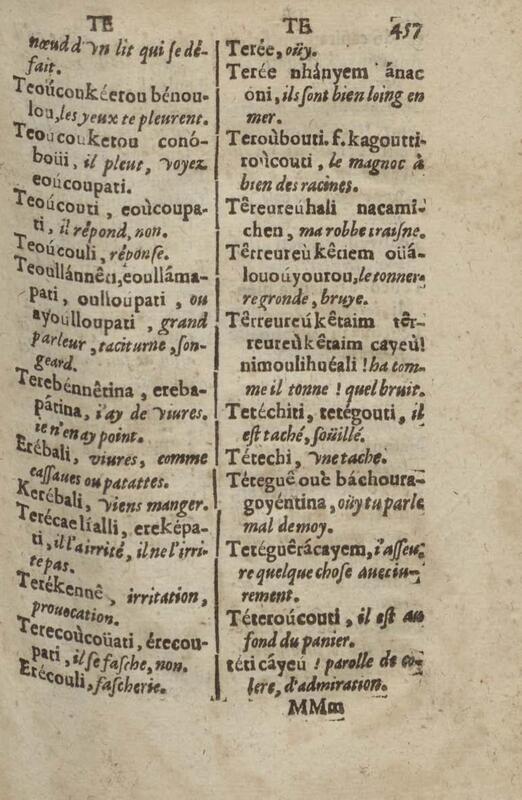 TE
nœud d'vn lit qui se dé-
fait.
Teoúcoukéerou bénou-
lou, les yeux te pleurent.
Teoucouketou conó-
boüi, il pleut, voyez
eoúcoupati.
Teoúcouti, eoùcoupa-
ti, il répond, non.
Teoúcouli, réponse.
Teoullánnêti, eoulláma-
pati, oulloupati, ou
ayoulloupati, grand
parleur, taciturne, son-
geard.
Terebénnêtina, ereba-
pátina, i'ay de viures.
ie n'en ay point.
Erébali, viures, comme
cassaues ou patattes.
Kerébali, viens manger.
Terécae líalli, ereképa-
ti, il l'a irrité, il ne l'irri-
te pas.
Terékennê, irritation,
prouocation.
Terecoùcoüati, érecou-
pati, il se fasche, non.
Erécouli, fascherie.
TE 457
Terée, oüy.
Terée nhányem ánac
oni, ils sont bien loing en
mer.
Teroùbouti. f. kagoutti-
roùcouti, le magnoc à
bien des racines.
Têreureúhali nacami-
chen, ma robbe traisne.
Têrreureù kêtiem oüá-
louoúyourou, le tonner-
re gronde, bruye.
Têrreureú kêtaim têr-
reureù kêtaim cayeù!
nimoulihuéali! ha com-
me il tonne! quel bruit.
Tetéchiti, tetégouti, il
est taché, soüillé.
Tétechi, vne tache.
Téteguê ouè báchoura-
goyéntina, oüy tu parle
mal de moy.
Tetéguêrácayem, i'asseu-
re quelque chose auec iu-
rement.
Téteroúcouti, il est au
fond du panier.
téti câyeú! parolle de co-
lere, d'admiration.
MMm